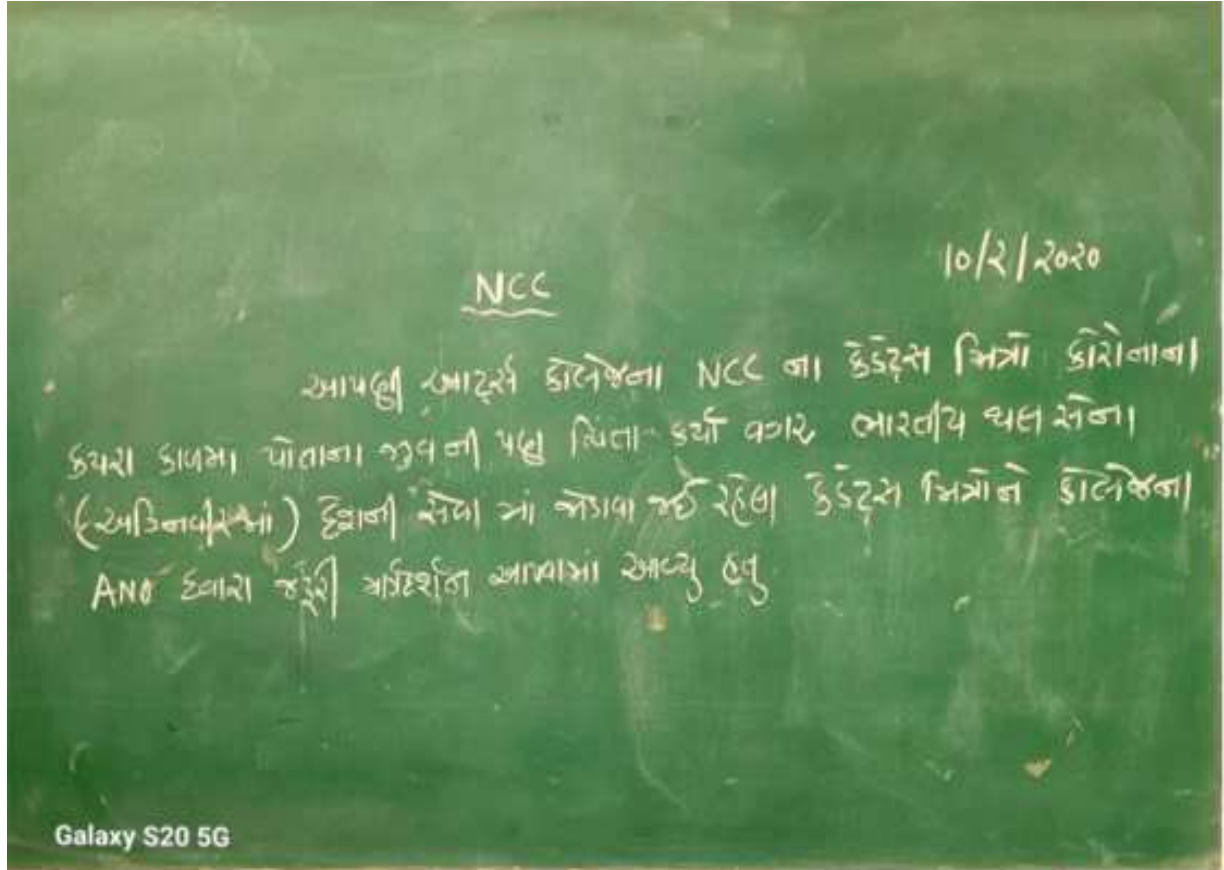 ૧૦/૨/૨૦૨૦
NCC
આપણી આર્ટ્સ કોલેજના NCC ના કેડેટ્સ મિત્રો કોરોનાના
કપરા કાળમા પોતાના જીવની પણ ચિંતા કર્યા વગર ભારતીય થલ સેના
(અગ્નિવીરમાં) દેશની સેવા માં જોડાવા જઈ રહેલા કેડેટ્સ મિત્રોને કોલેજના
ANO દ્વારા જરૂરી માર્ગદર્શન આપવામાં આવ્યુ હતુ
Galaxy S20 5G